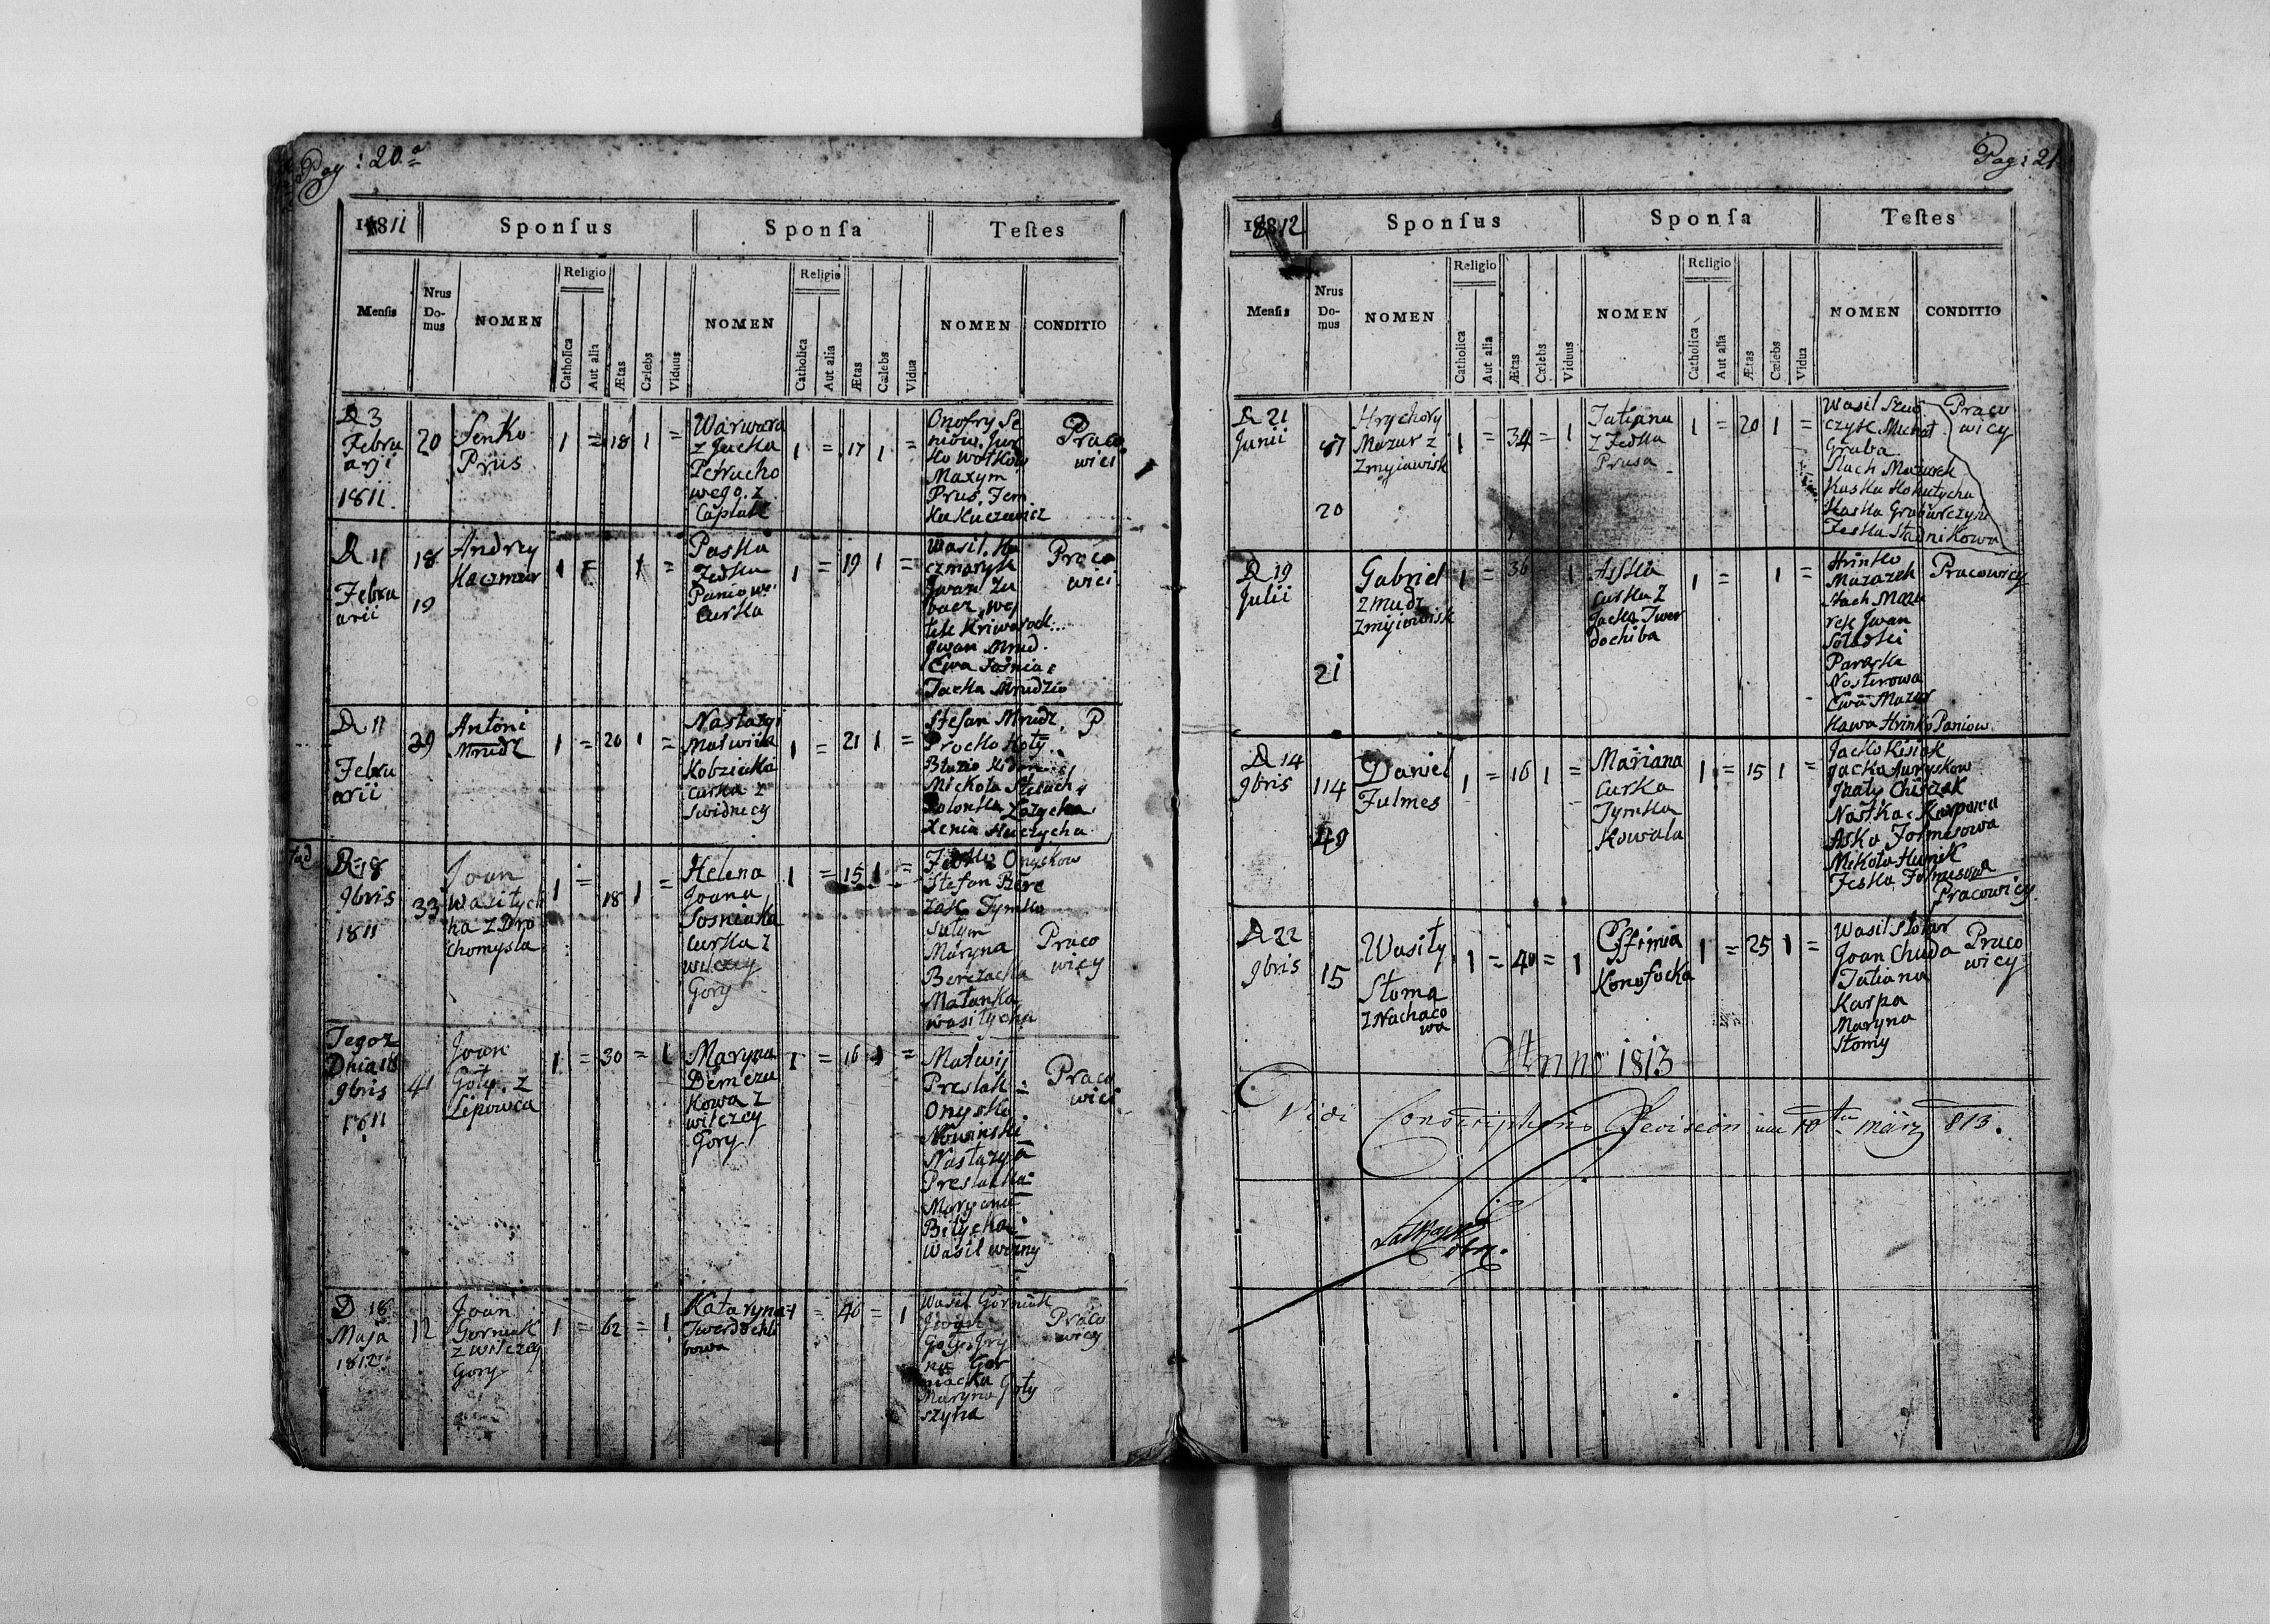 Pag: 20
1811
Sponsus
Sponsa
Testes
Mensis
Nrus Do-mus
NOMEN
Religio
Catholica
Aut alia
Ætas
Cælebs
Viduus
NOMEN
Religio
Catholica
Aut alia
Ætas
Cælebs
Vidua
NOMEN
CONDITIO
D 3
Febru
arji
1811.
20
Senko
Prus
1 = 18 1 =
Warwara
z Jacka
Petrucho
wego. z
1 = 17 1 =
Onofry Se
niów. Jur
ko Wołkow
Maxym
Prus. Fem
Praco
wici
D 11
Febru
arii
18
19
Andrzy
Kaczmar
1 = 1 =
Paska
Fedka
Paniow
curka
1 = 19 1 =
Wasil. Ka
czmaryk
Jwan. Zu
Jwan Mrud.
Ewa
Jacka Mrudzio
Praco
wici
D 11
Febru
arii
29
Antoni
Mrudz
1 = 20 1 =
Nastazyi
Matwiia
Kobziaka
curka z
Swidnicy
1 = 21 1 =
Stefan Mrudz.
Procko Hoły
Mickoła
Xenia Huczycha
P
D 18
9bris
1811
33
Joan
Wasilych
ka z Dro
chomysla
1 = 18 1 =
Helena
Joana
Sosniaka
curka z
wilczey
Gory
1 = 15 1 =
Fedko Onyskow
Stefan Bere
zak Tymko
Maryna
Berezacka
Małanka
Wasilycha
Praco
wicy
Tegoz
Dnia 18
9bris
1811
41
Joan
Goły. z
Lipowca
1 = 30 = 1
Maryna
Demczu
kowa z
wilczey
Gory
1 = 16 1 =
Matwij
Preslak
Onysko
Nowinski
Nastazya
Preslacka
Maryana
Bilycha
Wasil worny
Praco
wici
D 18
Maja
1812
12
Joan
Gorniak
z wilczey
Gory
1 = 62 = 1
Kataryna
Twerdochli
bowa
1 = 40 = 1
Wasil Gorniak
Joan
Goły. Jry
na Gor
niacka
Maryna Goły
szyna
Praco
wicy
Pag: 21
1812
Sponsus
Sponsa
Testes
Mensis
Nrus Do-mus
NOMEN
Religio
Catholica
Aut alia
Ætas
Cælebs
Viduus
NOMEN
Religio
Catholica
Aut alia
Ætas
Cælebs
Vidua
NOMEN
CONDITIO
D 21
Junii
20
Hrychory
Mazur z
Zmyiawisk
1 = 34 = 1
Tatiana
z Fedka
Prusa
1 = 20 1 =
Wasil
czyk Michał
Graba
Stach Mazurek
Kaska Kohutycha
Feska Stadnikowa
Praco
wicy
D 19
Julii
21
Gabriel
Zmudz
Zmyiowisk
1 = 36 1
Asska
curka z
Jacka Twer
dochiba
1 = 1 =
Hrinko
Mazarek
Stach Mazu
rek Jwan
Sołodki
Paraska
Nosterowa
Ewa Mazur
Hawa Hrinko Paniow.
Pracowicy
D 14
9bris
114
49
Daniel
Fulmes
1 = 16 1 =
Mariana
curka
Tymka
Kowala
1 = 15 1 =
Jacko Kisiak
Nastka Karpowa
Aska Folmesowa
Mikoła Humik
Feska Folmesowa
Pracowicy
D 22
9bris
15
Wasily
Słoma
z Nachaco
wa
1 = 40 = 1
Effimia
Konofocka
1 = 25 1 =
Wasil Stolar
Joan Chuda
Tatiana
Karpa
Maryna
Słomy
Praco
wicy
Anno 1813
Vidi Conscriptions Revision 10 März 813.